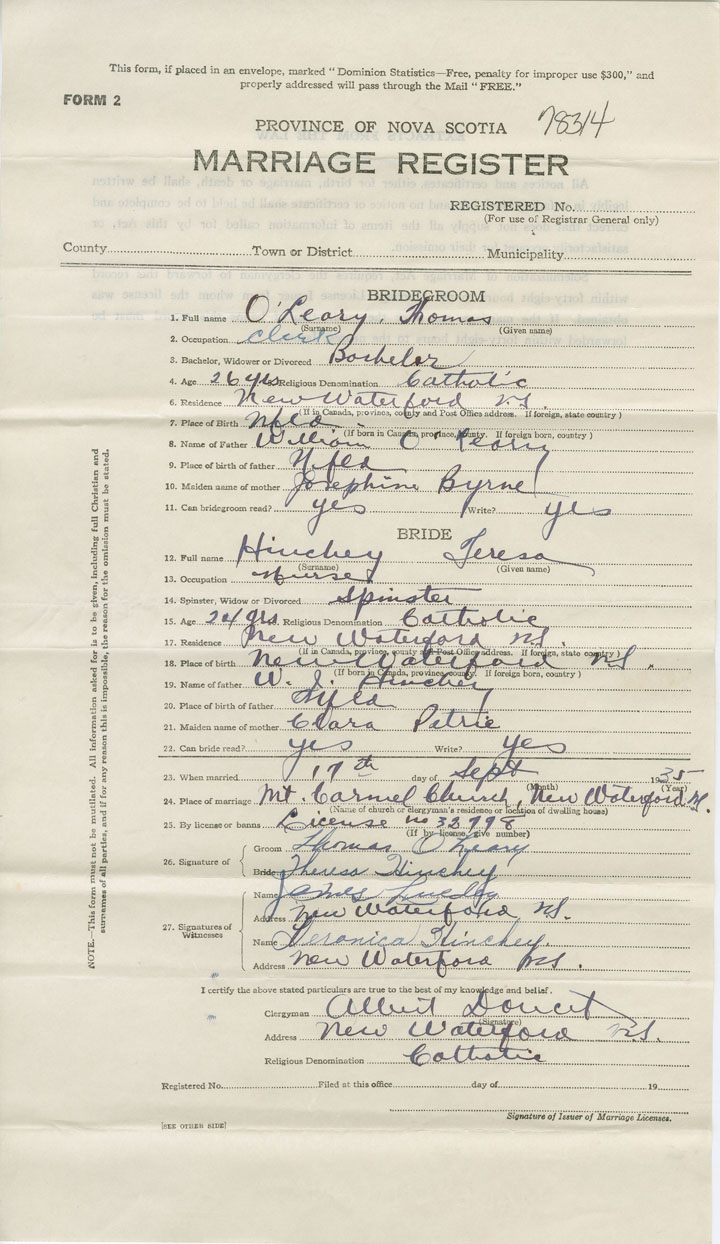 This form, if placed in an envelope, marked "Dominion Statistics—Free, penalty for improper use $300," and
properly addressed will pass through the Mail "FREE."
FORM 2
PROVINCE OF NOVA SCOTIA 78314
MARRIAGE REGISTER
REGISTERED No.
(For use of Registrar General only)
County Town or District Municipality
BRIDEGROOM
1. Full name O'Leary, Thomas
(Surname) (Given name)
2. Occupation Clerk
3. Bachelor, Widower or Divorced Bachelor
4. Age 26 yrs Religious Denomination Catholic
6. Residence New Waterford N.S.
(If in Canada, province, county and Post Office address. If foreign, state country)
7. Place of Birth Nfld
(If born in Canada, province, county. If foreign born, country)
8. Name of Father William O'Leary
9. Place of birth of father Nfld
10. Maiden name of mother Josephine Byrne
11. Can bridegroom read? yes Write? yes
BRIDE
12. Full name Hinchey Teresa
(Surname) (Given name)
13. Occupation Nurse
14. Spinster, Widow or Divorced Spinster
15. Age 24 yrs Religious Denomination Catholic
17. Residence New Waterford N.S.
(If in Canada, province, county and Post Office address. If foreign, state country)
18. Place of birth New Waterford N.S.
(If born in Canada, province, county. If foreign born, country)
19. Name of father W. J. Hinchey
20. Place of birth of father Nfld
21. Maiden name of mother Clara Petrie
22. Can bride read? yes Write? yes
23. When married 17th day of Sept 1935
(Month) (Year)
24. Place of marriage Mt. Carmel Church, New Waterford N.S.
(Name of church or clergyman's residence or location of dwelling house)
25. By license or banns License no 32798
(If by license, give number)
26. Signature of
Groom Thomas O'Leary
Bride Theresa Hinchey
27. Signatures of Witnesses
Name James
Address New Waterford N.S.
Name Veronica Hinchey
Address New Waterford N.S.
I certify the above stated particulars are true to the best of my knowledge and belief.
Clergyman Albert Doucet
(Signature)
Address New Waterford N.S.
Religious Denomination Catholic
Registered No. Filed at this office day of 19
Signature of Issuer of Marriage Licenses.
[SEE OTHER SIDE]
NOTE.—This form must not be mutilated. All information asked for is to be given, including full Christian and
surnames of all parties, and if for any reason this is impossible, the reason for the omission must be stated.